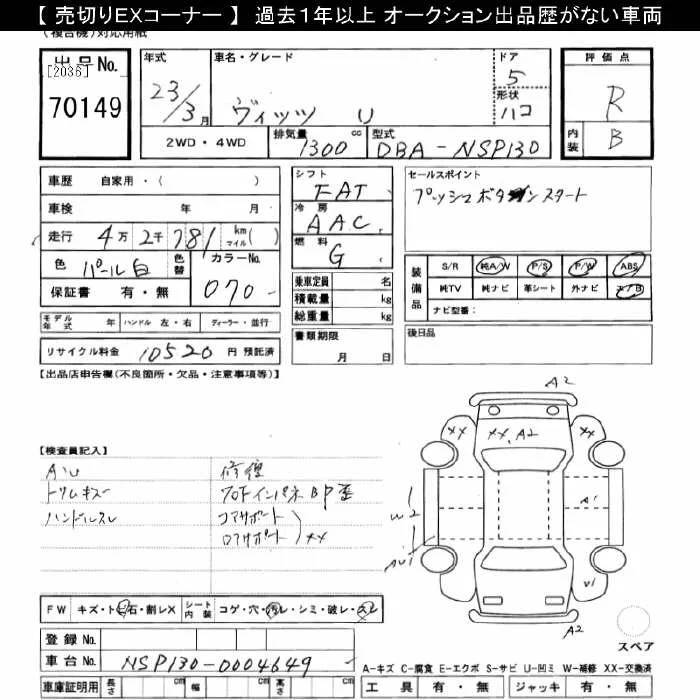 【 売切りEXコーナー 】 過去1年以上 オークション出品歴がない車両
(複合機)対応用紙
出品No. [2036] 70149
年式 23/3月
車名・グレード ヴィッツ U
ドア 5
形状 ハコ
評価点 R
内装 B
2WD・4WD
排気量 1300 cc
型式 DBA-NSP130
車歴 自家用・( )
車検 年 月
走行 4万2千781km マイル( )
色 パール白 色替
カラーNo. 070
保証書 有・無
シフト FAT
冷房 AAC
燃料 G
乗車定員 名
積載量 kg
総重量 kg
セールスポイント
プッシュボタンスタート
装備品 S/R 純A/W P/S P/W ABS
純TV 純ナビ 革シート 外ナビ エアB
ナビ型番:
モデル年式 年 ハンドル 左・右 ディーラー・並行
リサイクル料金 10520 円 預託済
書類期限 月 日
後日品
【出品店申告欄(不良箇所・欠品・注意事項等)】
【検査員記入】
トリムキズ
ハンドルスレ
修復
コアサポート
ロアサポート XX
A2
XX XX、A2 XX
W2 A1
A2
FW キズ・トビ石・割レX
シート内装 コゲ・穴・汚レ・シミ・破レ・スレ
登録No.
車台No. NSP130-0004649
スペア
A-キズ C-腐食 E-エクボ S-サビ U-凹ミ W-補修 XX-交換済
車庫証明用 長さ cm 幅 cm 高さ cm
工具 有・無 ジャッキ 有・無